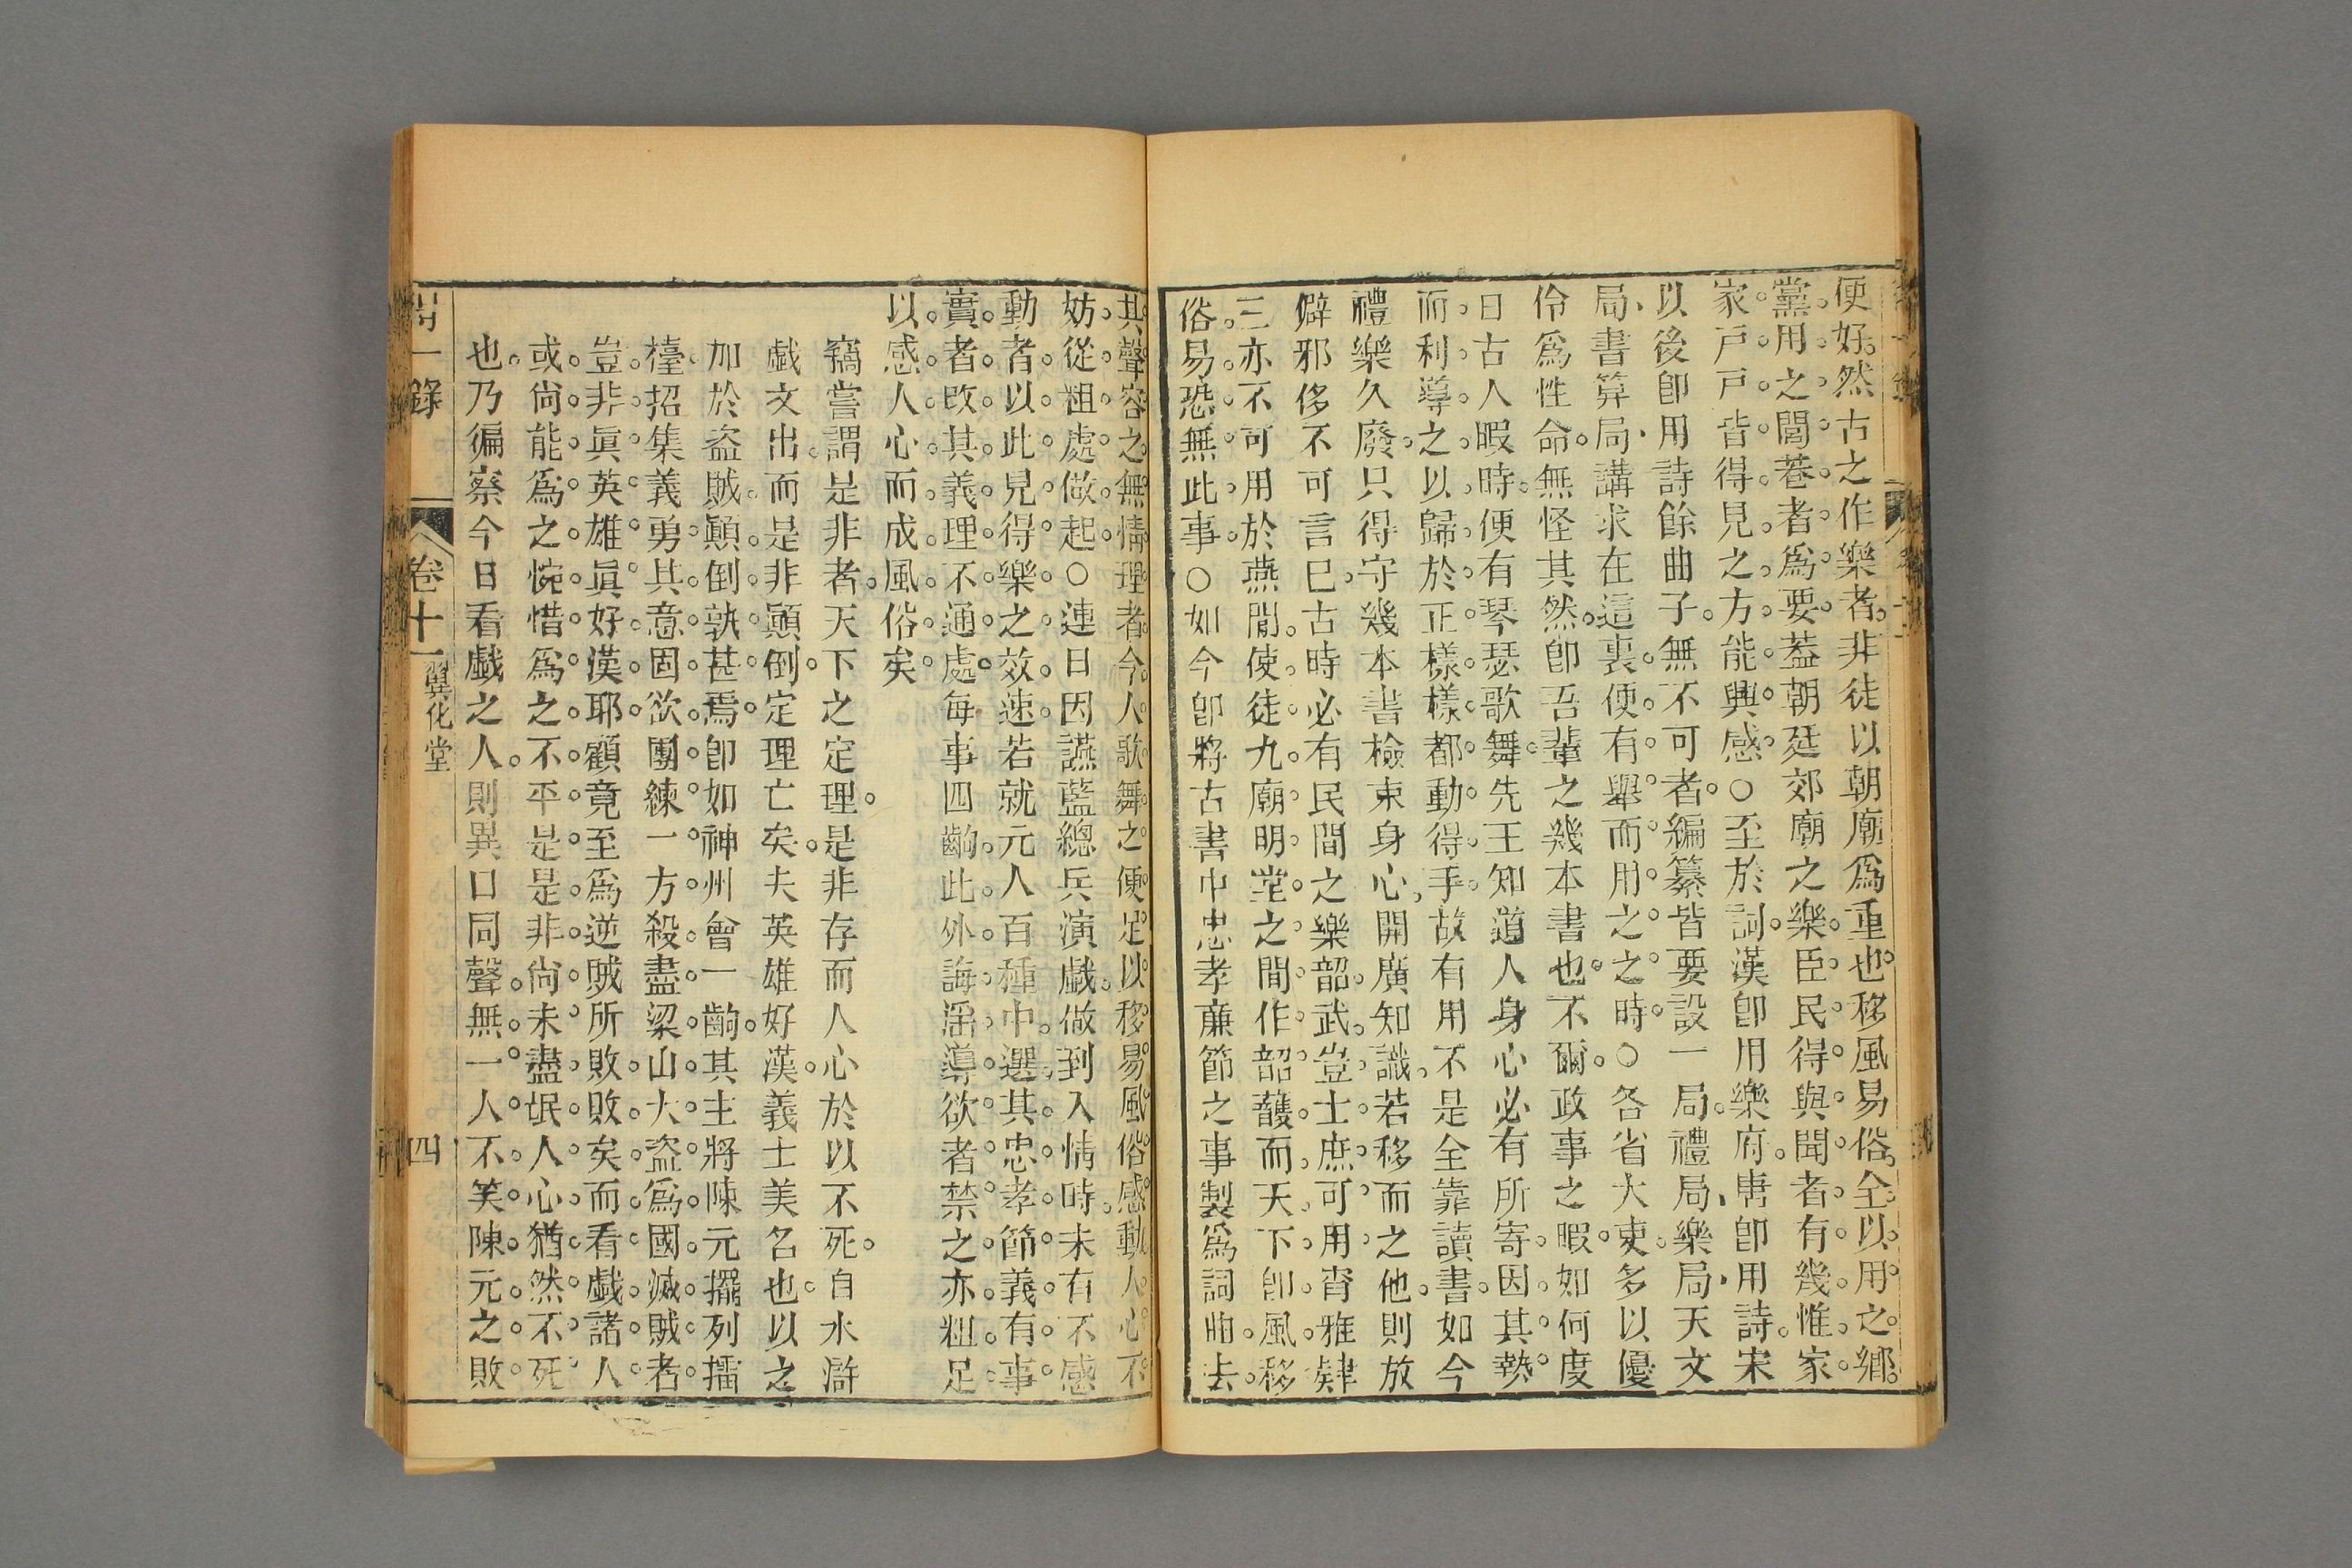 便好。然古之作樂者。非徒以朝廟爲重也。移風易俗。全以用之鄉
黨。用之閭巷者爲要。葢朝廷郊廟之樂。臣民得與聞者有幾。惟家
家戸戸皆得見之。方能興感。○至於詞。漢卽用樂府。唐卽用詩。宋
以後卽用詩餘曲子。無不可者。編纂皆要設一局。禮局、樂局、天文
局、書算局、講求在這裏。便有舉而用之之時。○各省大吏。多以優
伶爲性命。無怪其然。卽吾輩之幾本書也。不爾。政事之暇。如何度
日。古人暇時。便有琴瑟歌舞。先王知道人身心必有所寄。因其勢
而利導之。以歸於正。樣樣都動得手。故有用。不是全靠讀書。如今
禮樂久廢。只得守幾本書。檢束身心。開廣知識。若移而之他。則放
僻邪侈。不可言已。古時必有民間之樂。韶武。豈士庶可用。胥雅肄
三。亦不可用於燕閒。使徒九廟明堂之間。作韶頀。而天下卽風移
俗易。恐無此事。○如今卽將古書中忠孝廉節之事。製爲詞曲。去
其聲容之無情理者。今人歌舞之。便足以移易風俗。感動人心。不
妨從粗處做起。○連日因讌藍總兵演戲。做到入情時。未有不感
動者。以此見得樂之效速。若就元人百種中。選其忠孝節義。有事
實者。改其義理不通處。每事四齣。此外誨淫導欲者禁之。亦粗足
以感人心而成風俗矣。
竊嘗謂是非者。天下之定理。是非存而人心於以不死。自水滸
戲文出。而是非顚倒。定理亡矣。夫英雄好漢。義士美名也。以之
加於盜賊。顚倒孰甚焉。卽如神州會一齣。其主將陳元擺列擂
檯。招集義勇。其意固欲團練一方。殺盡梁山大盜。爲國滅賊者。
豈非眞英雄眞好漢耶。顧竟至爲逆賊所敗。敗矣。而看戲諸人
或尙能爲之惋惜。爲之不平。是是非尙未盡泯。人心猶然不死
也。乃徧察今日看戲之人。則異口同聲。無一人不笑陳元之敗
一錄
卷十一
翼化堂
四